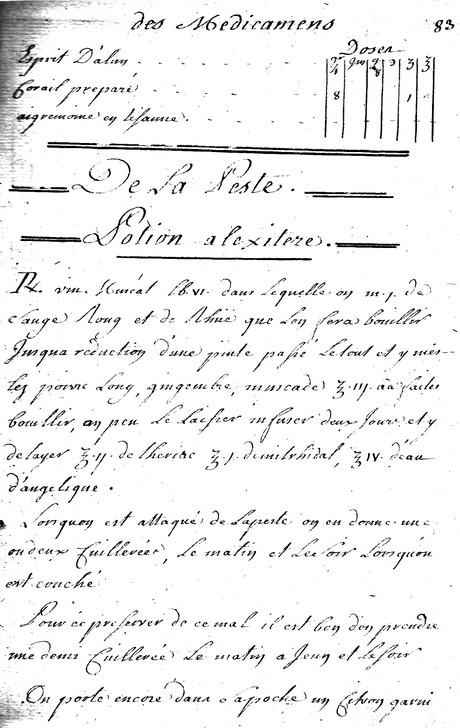 des Medicamens 83
Doses
Esprit D'alun
Corail preparé 8 1
aigremoine en tisanne
De La Peste.
Potion alexitere.
℞ vin Muscat lb vi dans lequelle on m. j. de
sauge Roug et de Rhüe que Lon fera bouillir
Jusqua reduction d'une pinte passé Le tout et y mes-
lez poivre Long, gingembre, muscade ℥ III aa faites
bouillir, un peu Le Laisser infuser deux Jours et y
delayer ℥ II de theriac ℥ I de mitrhidat, ℥ IV d'eau
d'angelique.
Lorsquon est attaqué de Lapeste on en donne une
ou deux Cuillerées, Le matin et Le soir Lorsquon
est couché
Pour ce preserver de ce mal il est bon d'en prendre
une demis Cuillerée Le matin a Jeun et Le soir
On porte encore dans sa poche un Citron garni